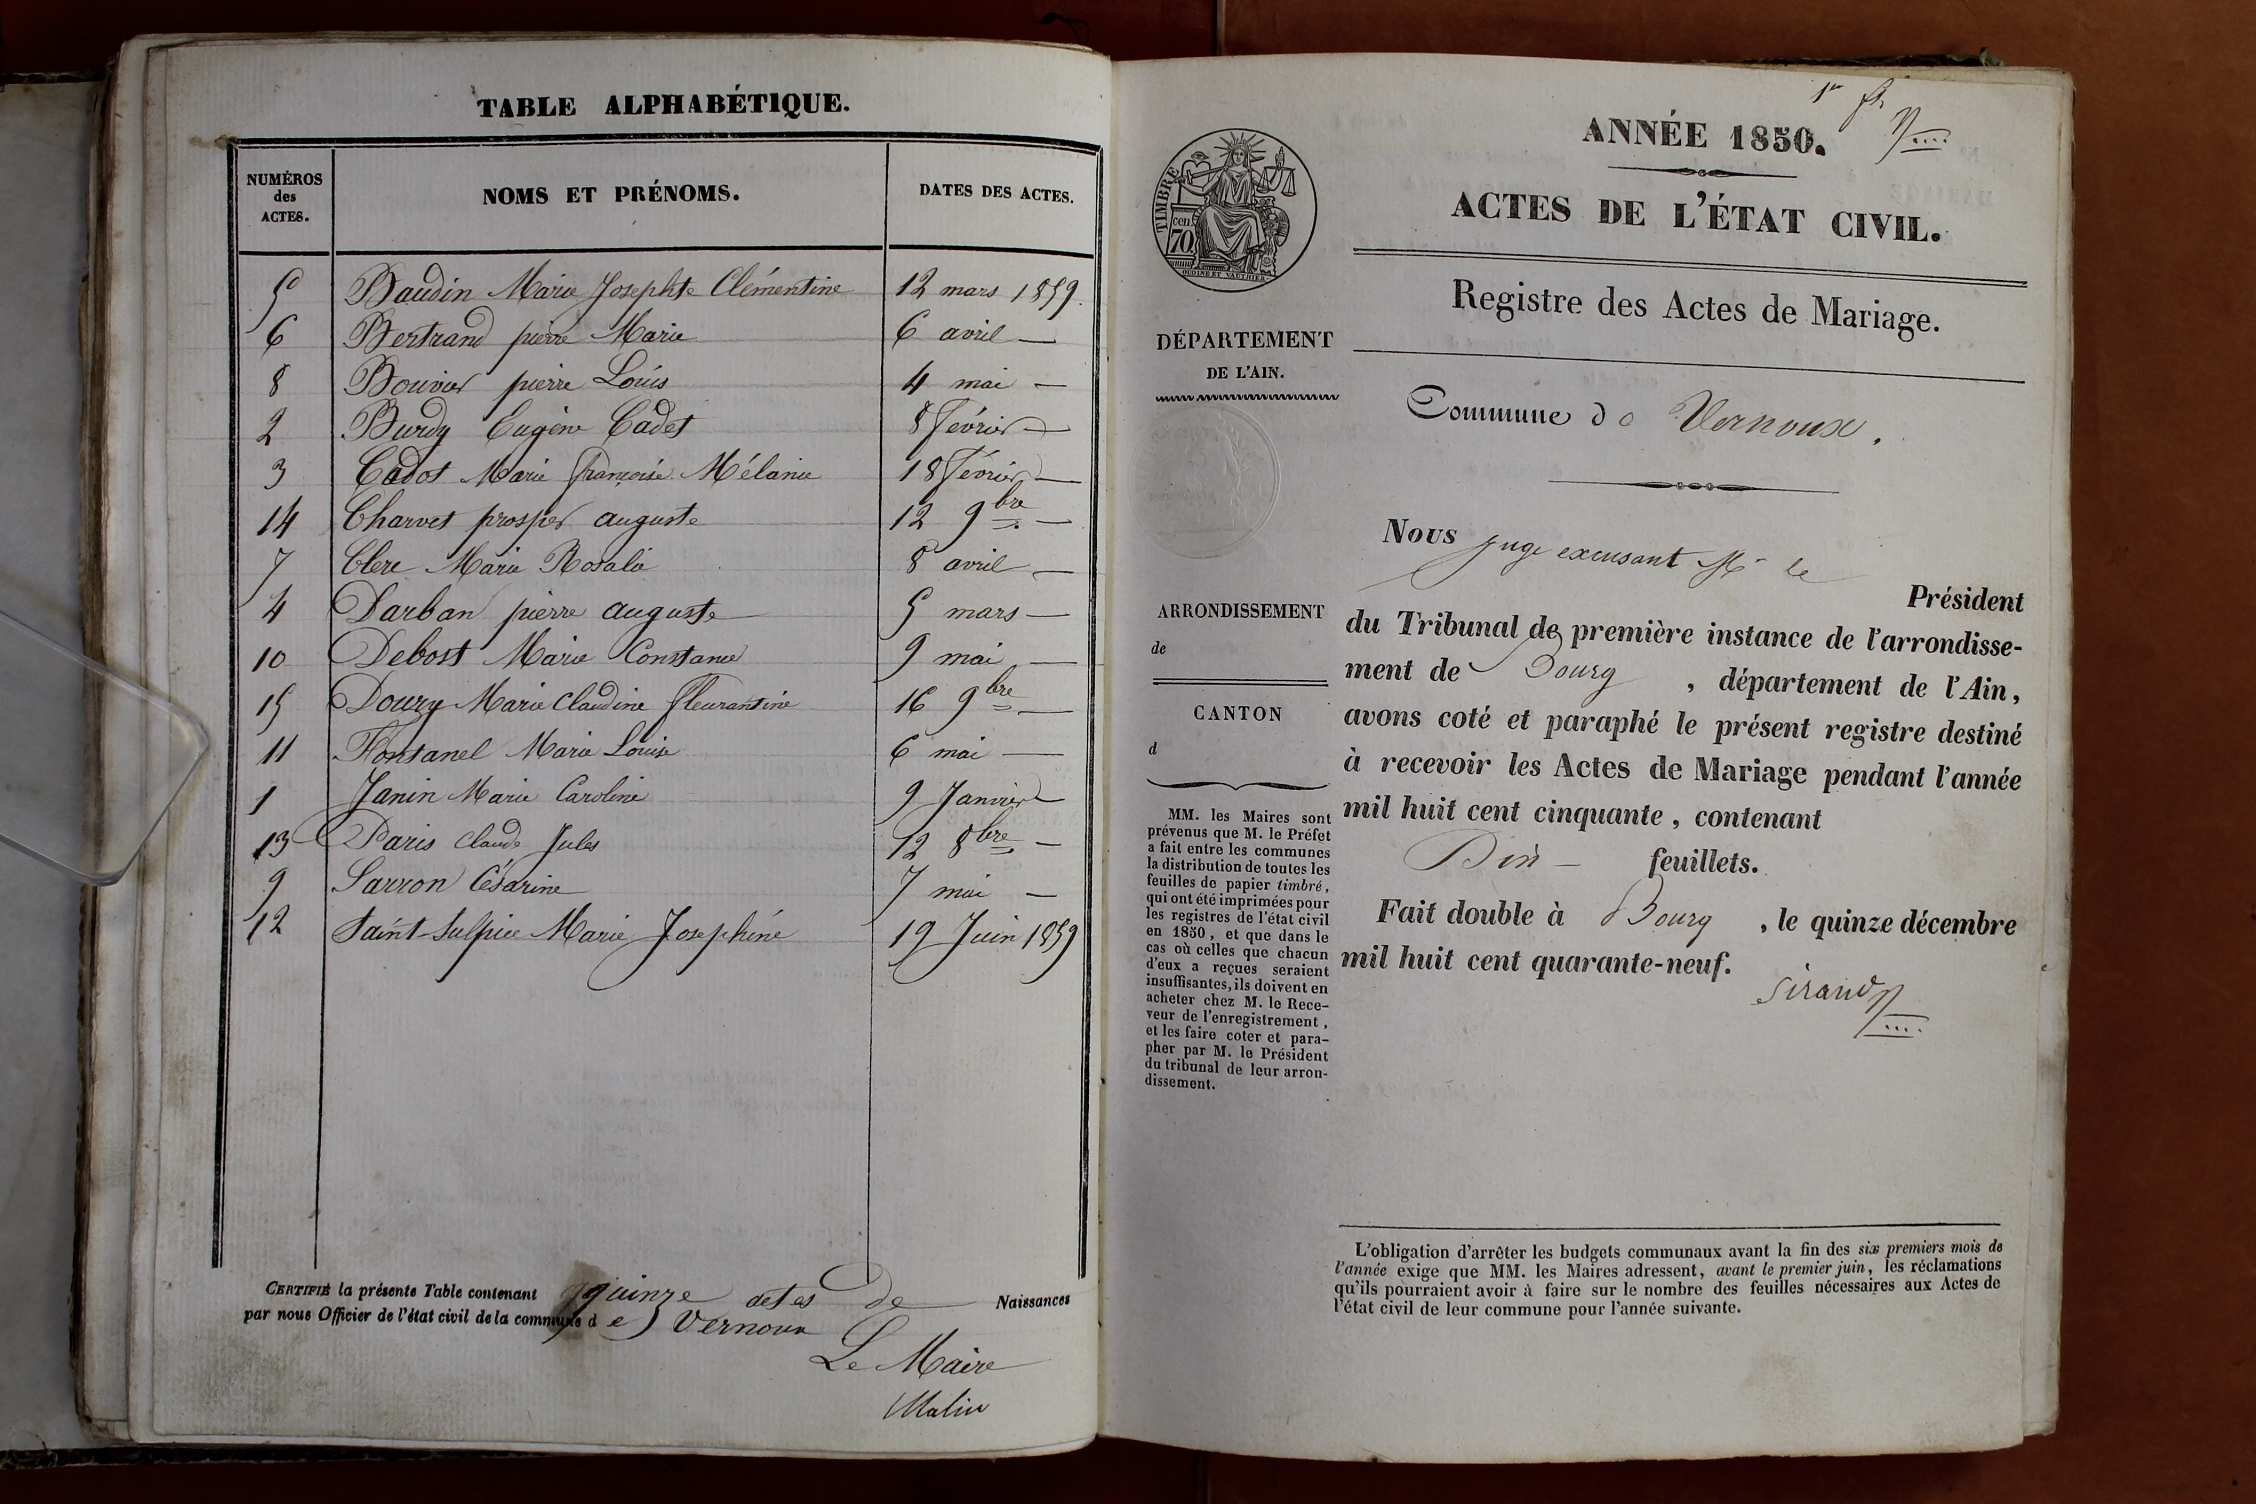 TABLE ALPHABÉTIQUE.
NUMÉROS des ACTES. NOMS ET PRÉNOMS. DATES DES ACTES.
5 Baudin Marie Josephte Clémentine 12 mars 1859.
6 Bertrand pierre Marie 6 avril —
8 Bouvier pierre Louis 4 mai —
2 Burdy Eugène Cadet 8 Février —
3 Cadot Marie françoise Mélanie 18 Février —
14 Charvet prosper auguste 12 9bre —
7 Clerc Marie Rosalie 8 avril —
4 Darban pierre auguste 5 mars —
10 Debost Marie Constance 9 mai —
15 Doury Marie Claudine fleurantine 16 9bre —
11 Fontanel Marie Louise 6 mai —
1 Janin Marie Caroline 9 Janvier —
13 Paris Claude Jules 12 8bre —
9 Sarron Césarine 7 mai —
12 Saint-Sulpice Marie Joséphine 19 Juin 1859
CERTIFIÉ la présente Table contenant quinze actes de Naissances
par nous Officier de l'état civil de la commune de Vernoux
Le Maire
1er
ANNÉE 1850.
ACTES DE L'ÉTAT CIVIL.
Registre des Actes de Mariage.
TIMBRE
70 cen
OUDINÉ ET VAUTHIER
DÉPARTEMENT
DE L'AIN.
Commune de Vernoux.
Nous juge excusant Mr le
Président
du Tribunal de première instance de l'arrondisse-
ment de Bourg, département de l'Ain,
avons coté et paraphé le présent registre destiné
à recevoir les Actes de Mariage pendant l'année
mil huit cent cinquante, contenant
feuillets.
Fait double à Bourg, le quinze décembre
mil huit cent quarante-neuf.
Sirand
ARRONDISSEMENT
de
CANTON
d
MM. les Maires sont
prévenus que M. le Préfet
a fait entre les communes
la distribution de toutes les
feuilles de papier timbré,
qui ont été imprimées pour
les registres de l'état civil
en 1850, et que dans le
cas où celles que chacun
d'eux a reçues seraient
insuffisantes, ils doivent en
acheter chez M. le Rece-
veur de l'enregistrement,
et les faire coter et para-
pher par M. le Président
du tribunal de leur arron-
dissement.
L'obligation d'arrêter les budgets communaux avant la fin des six premiers mois de
l'année exige que MM. les Maires adressent, avant le premier juin, les réclamations
qu'ils pourraient avoir à faire sur le nombre des feuilles nécessaires aux Actes de
l'état civil de leur commune pour l'année suivante.